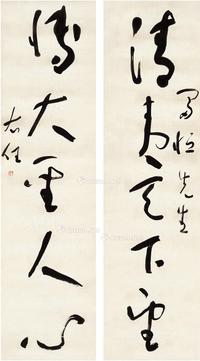 清天下望
恒先生
博大聖人心
右任